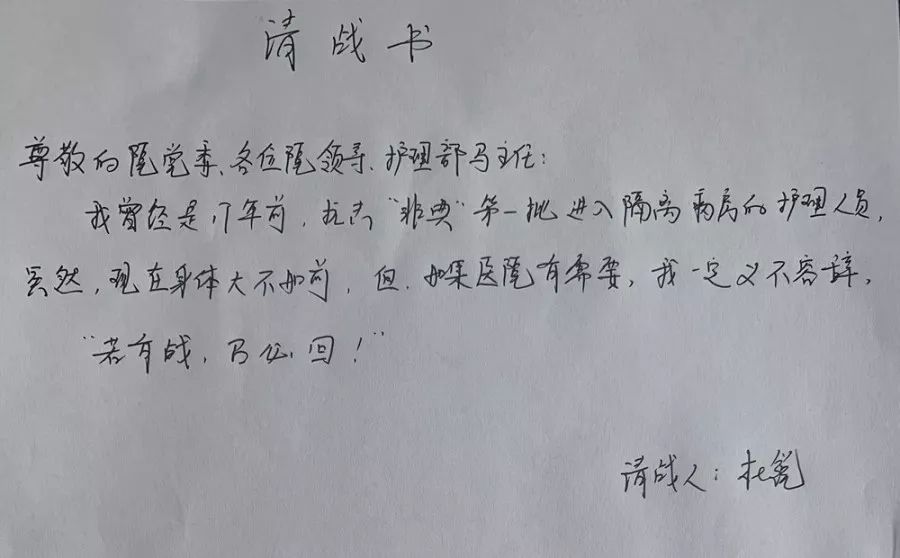 请战书
尊敬的院党委、各位院领导、护理部马主任:
我曾经是17年前,抗击“非典”第一批进入隔离病房的护理人员,
虽然,现在身体大不如前,但,如果医院有需要,我一定义不容辞,
“若有战,召必回!”
请战人:杜